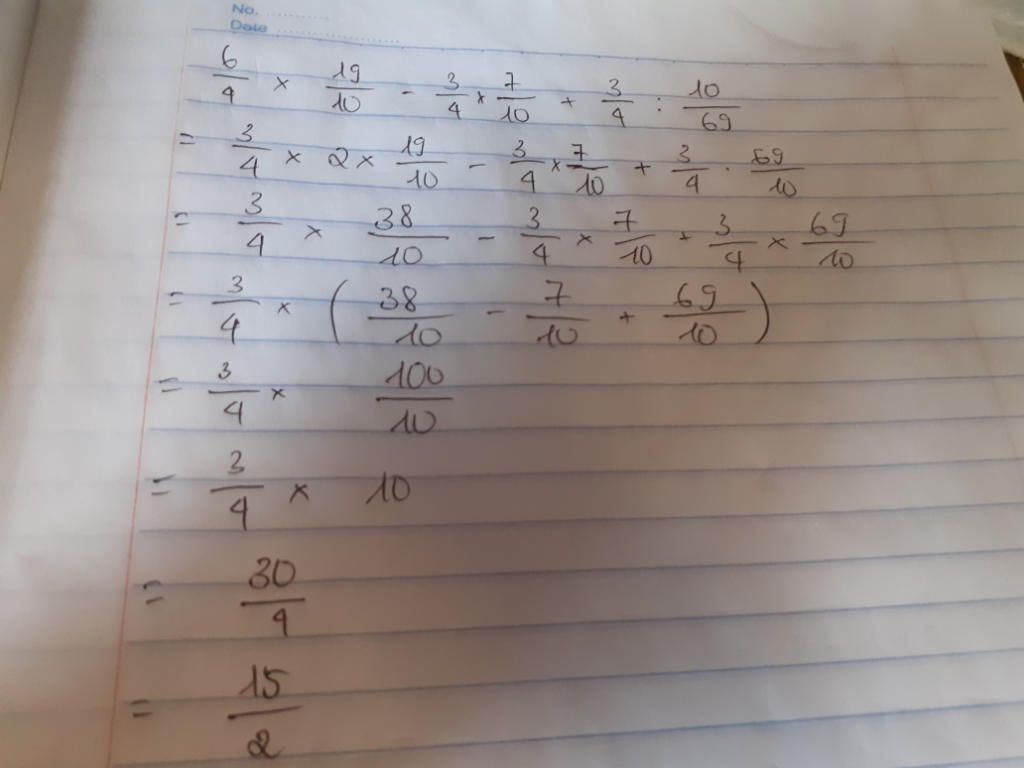 No. ............
Date ........................
6/4 × 19/10 - 3/4 × 7/10 + 3/4 : 10/69
= 3/4 × 2 × 19/10 - 3/4 × 7/10 + 3/4 . 69/10
= 3/4 × 38/10 - 3/4 × 7/10 + 3/4 × 69/10
= 3/4 × (38/10 - 7/10 + 69/10)
= 3/4 × 100/10
= 3/4 × 10
= 30/4
= 15/2